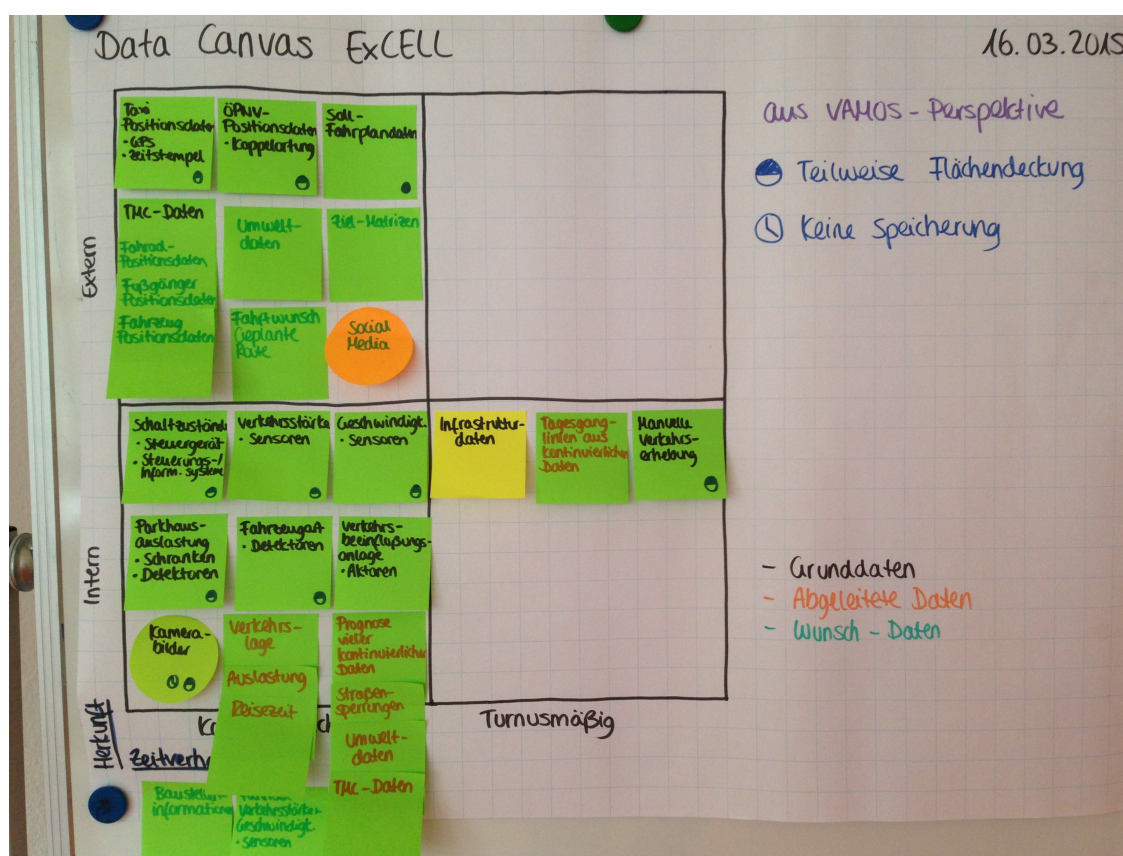 Data Canvas ExCELL
16.03.2015
aus VAMOS-Perspektive
Teilweise Flächendeckung
Keine Speicherung
Extern
Taxi
Positionsdaten
• GPS
• Zeitstempel
ÖPNV-
Positionsdaten
• Koppelortung
Soll-
Fahrplandaten
TMC-Daten
Fahrrad-
Positionsdaten
Fußgänger
Positionsdaten
Fahrzeug
Positionsdaten
Umwelt-
daten
Ziel-Matrizen
Fahrtwunsch
Geplante
Route
Social
Media
Intern
Schaltzuständ
• Steuergerät
• Steuerungs-/
Inform. systeme
Verkehrsstärke
• Sensoren
Geschwindigt.
• Sensoren
Infrastruktur-
daten
Tagesgang-
linien aus
kontinuierlichen
Daten
Manuelle
Verkehrs-
erhebung
Parkhaus-
auslastung
• Schranken
• Detektoren
Fahrzeugart
• Detektoren
Verkehrs-
beeinflußungs-
anlage
• Aktoren
Kamera-
bilder
Verkehrs-
lage
Auslastung
Reisezeit
Prognose
vieler
kontinuierlicher
Daten
Straßen-
sperrungen
Umwelt-
daten
TMC-Daten
- Grunddaten
- Abgeleitete Daten
- Wunsch-Daten
Turnusmäßig
Herkunft
Zeitverh
Baustellen
informatione
Verkehrsstärke
Geschwindigt.
• Sensoren